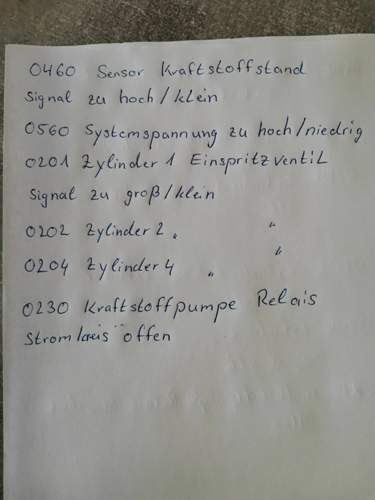 0460 Sensor Kraftstoffstand
Signal zu hoch/klein
0560 Systemspannung zu hoch/niedrig
0201 Zylinder 1 Einspritzventil
Signal zu groß/klein
0202 Zylinder 2 " "
0204 Zylinder 4 " "
0230 Kraftstoffpumpe Relais
Stromkreis offen